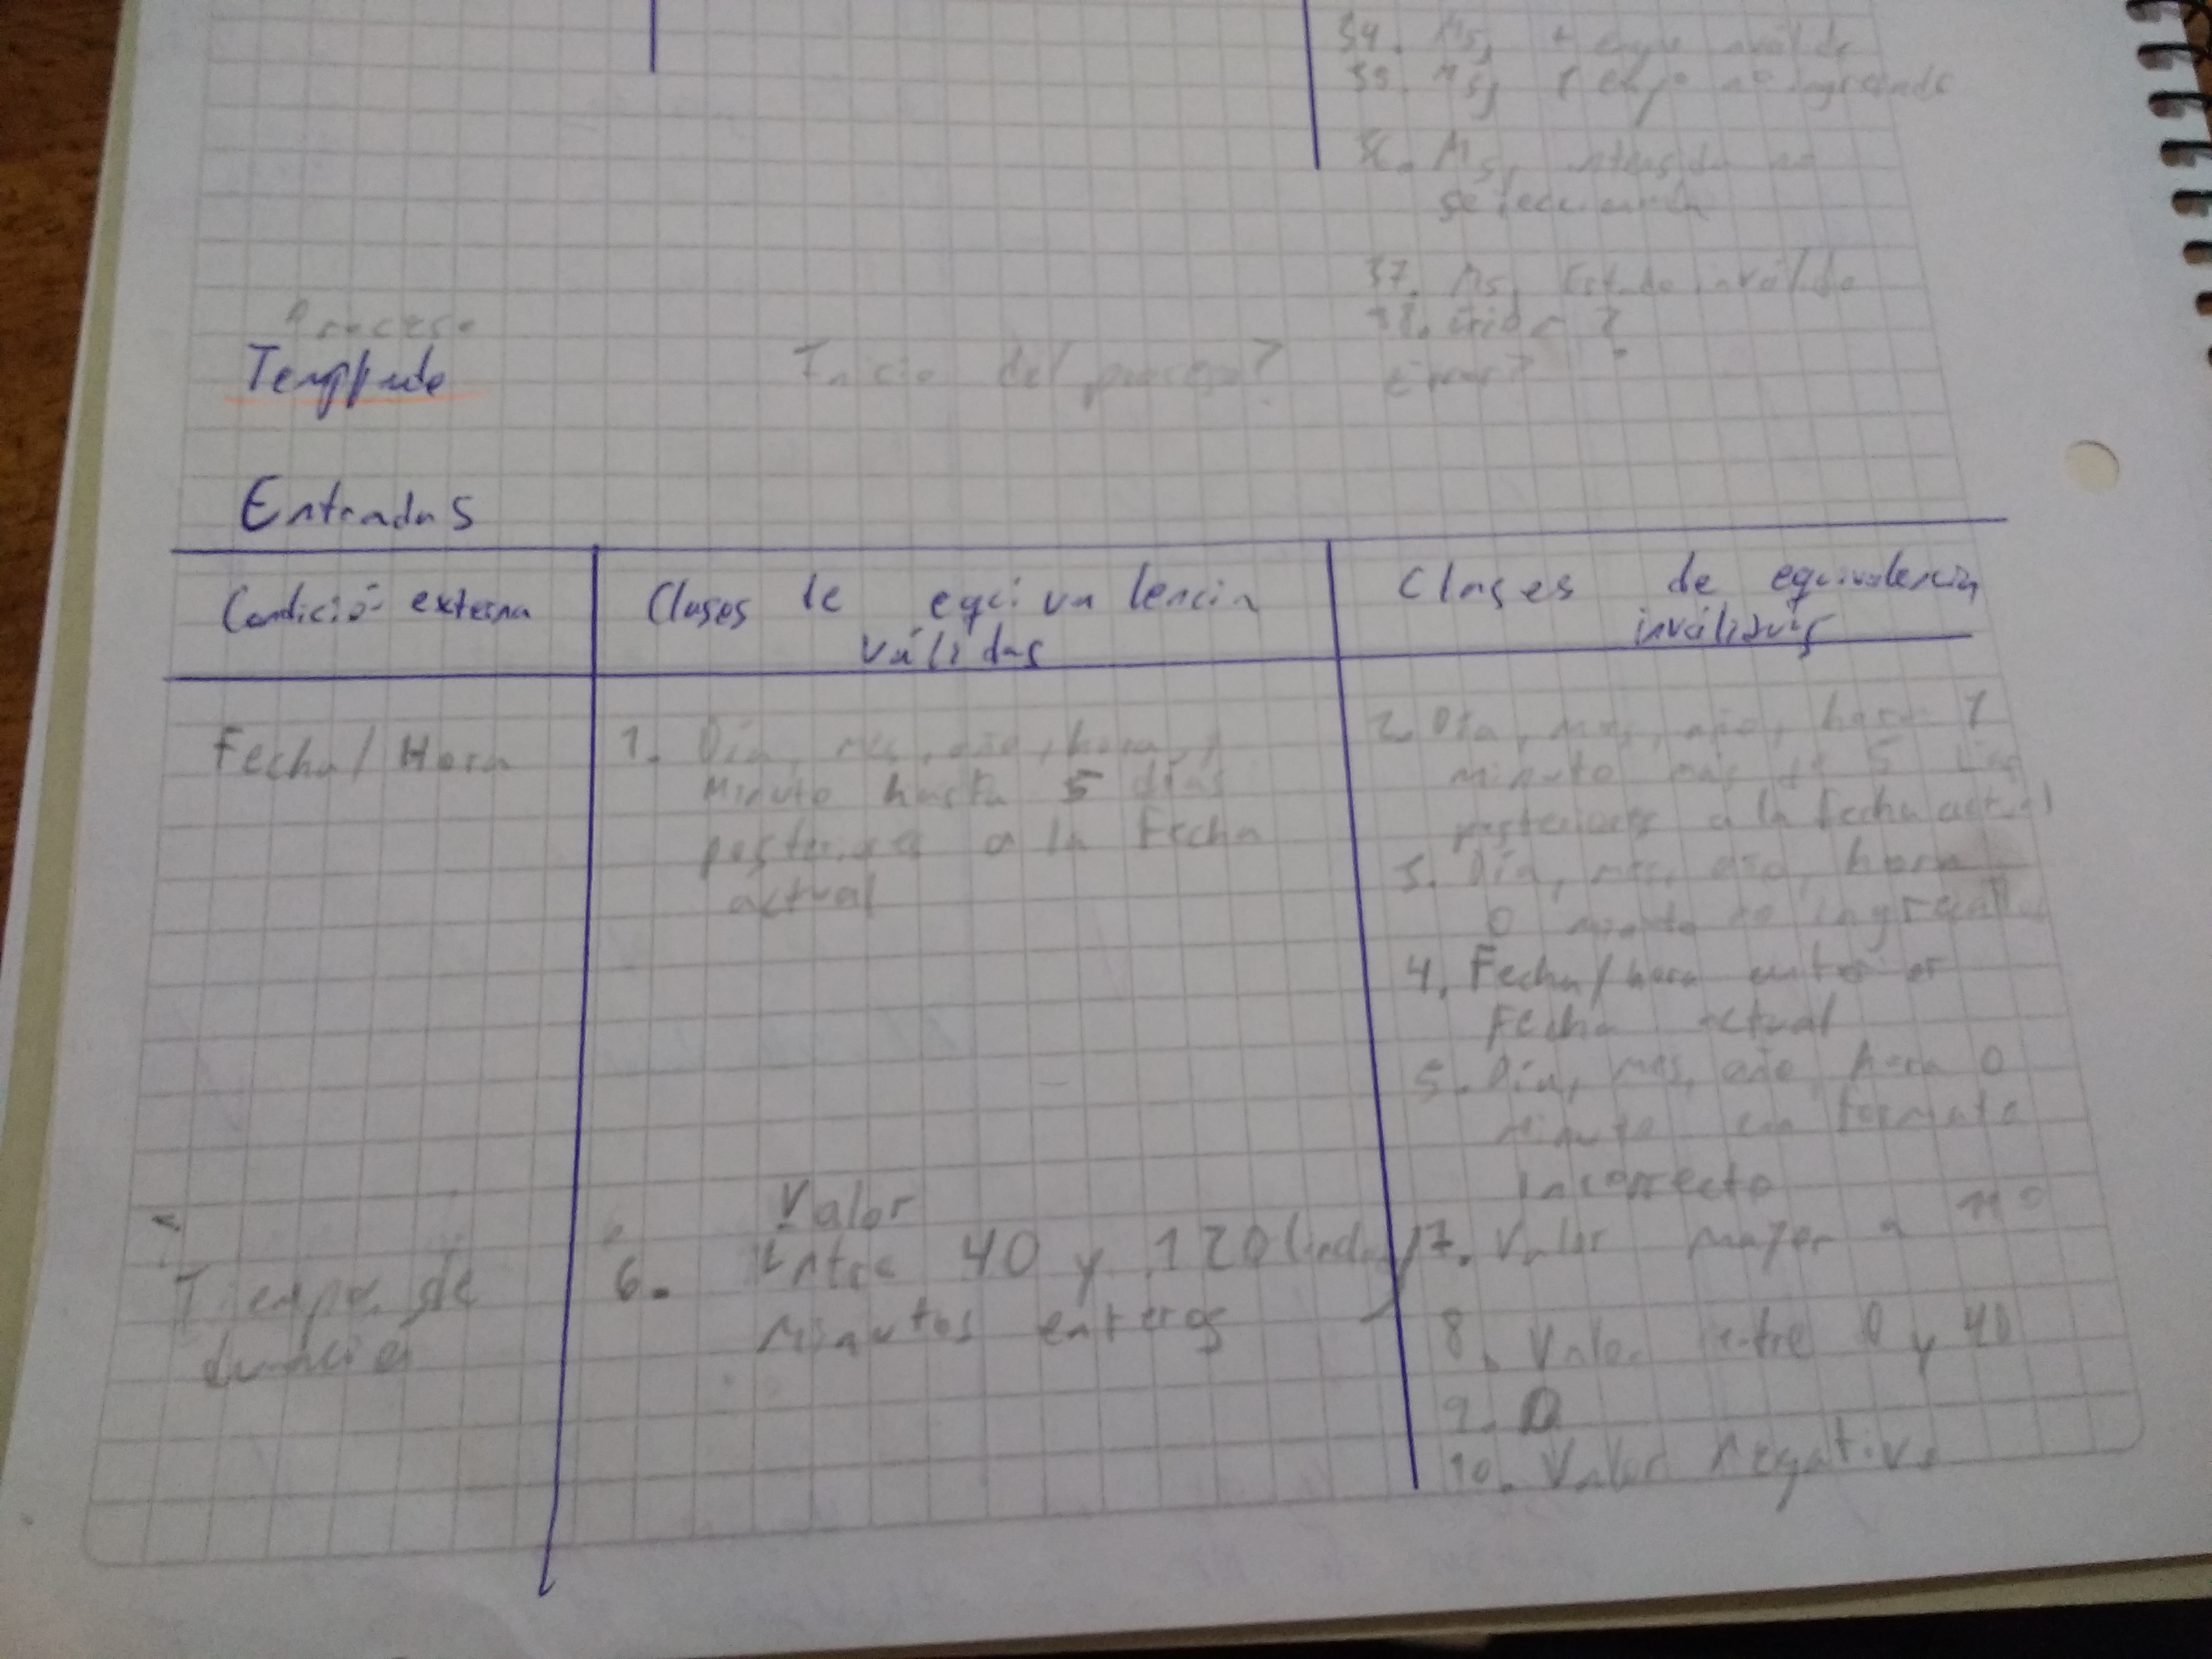 34. Msj
35. Msj no ingresado
36. Msj no
seleccionada
37. Msj Estado inválido
38.
Proceso
Inicio del proceso?
Templado
Entradas
Condición externa
Clases de equivalencia
válidas
Clases de equivalencia
inválidas
Fecha/Hora
1. Día, mes, año, hora,
Minuto hasta 5 días
posteriores a la Fecha
actual
2. Día, mes, año, hora y
minuto más de 5 días
posteriores a la fecha actual
3. Día, mes, año, hora
o minuto no ingresado
4. Fecha/hora anterior
Fecha actual
5. Día, mes, año, hora o
minuto en formato
incorrecto
Tiempo de
duración
6. Valor
Entre 40 y 120
Minutos enteros
7. Valor mayor a
8. Valor entre 0 y 40
9. 0
10. Valor negativo